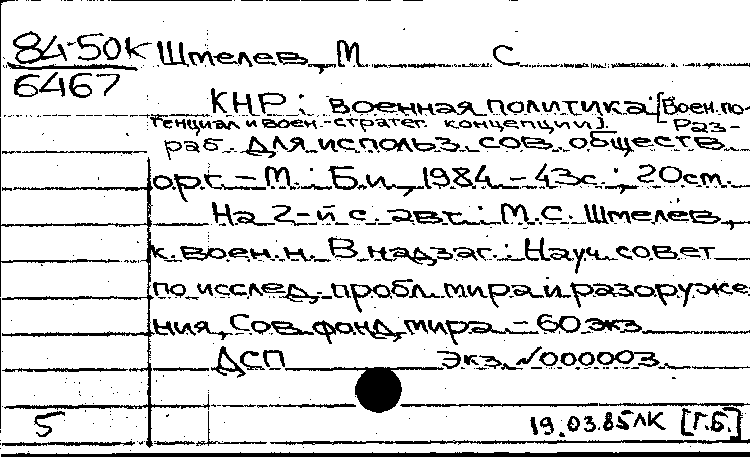 84-50к Штелев, М С
6467
КНР: военная политика: [Воен. по-
тенциал и воен.-стратег. концепции]. - Раз-
раб. для использ. сов. обществ.
орг. - М.: Б.и., 1984. - 43с.; 20см.
На 2-й с. авт.: М.С. Штелев,
к. воен. н. В надзаг.: Науч. совет
по исслед. пробл. мира и разоруже
ния, Сов. фонд мира. - 60 экз.
ДСП Экз. №000003.
5 19.03.85 ЛК [Г.Б.]